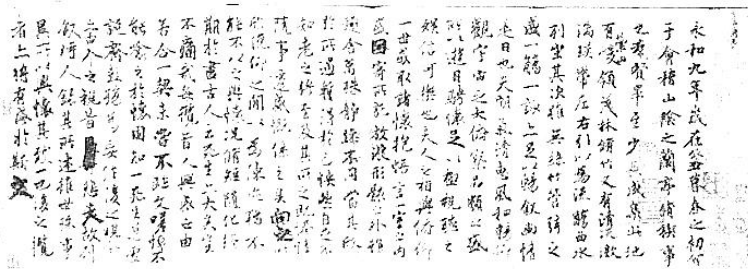 永和九年歲在癸丑暮春之初會
于會稽山陰之蘭亭脩禊事
也羣賢畢至少長咸集此地
有崇山峻領茂林脩竹又有清流激
湍暎帶左右引以為流觴曲水
列坐其次雖無絲竹管絃之
盛一觴一詠亦足以暢敘幽情
是日也天朗氣清惠風和暢仰
觀宇宙之大俯察品類之盛
所以遊目騁懷足以極視聽之
娛信可樂也夫人之相與俯仰
一世或取諸懷抱悟言一室之內
或因寄所託放浪形骸之外雖
趣舍萬殊靜躁不同當其欣
於所遇蹔得於己怏然自足不
知老之將至及其所之既惓情
隨事遷感慨係之矣向之所
欣俛仰之間以為陳迹猶不
能不以之興懷況脩短隨化終
期於盡古人云死生亦大矣豈
不痛哉每攬昔人興感之由
若合一契未嘗不臨文嗟悼不
能喻之於懷固知一死生為虛
誕齊彭殤為妄作後之視今
亦由今之視昔悲夫故列
敘時人錄其所述雖世殊事
異所以興懷其致一也後之攬
者亦將有感於斯文